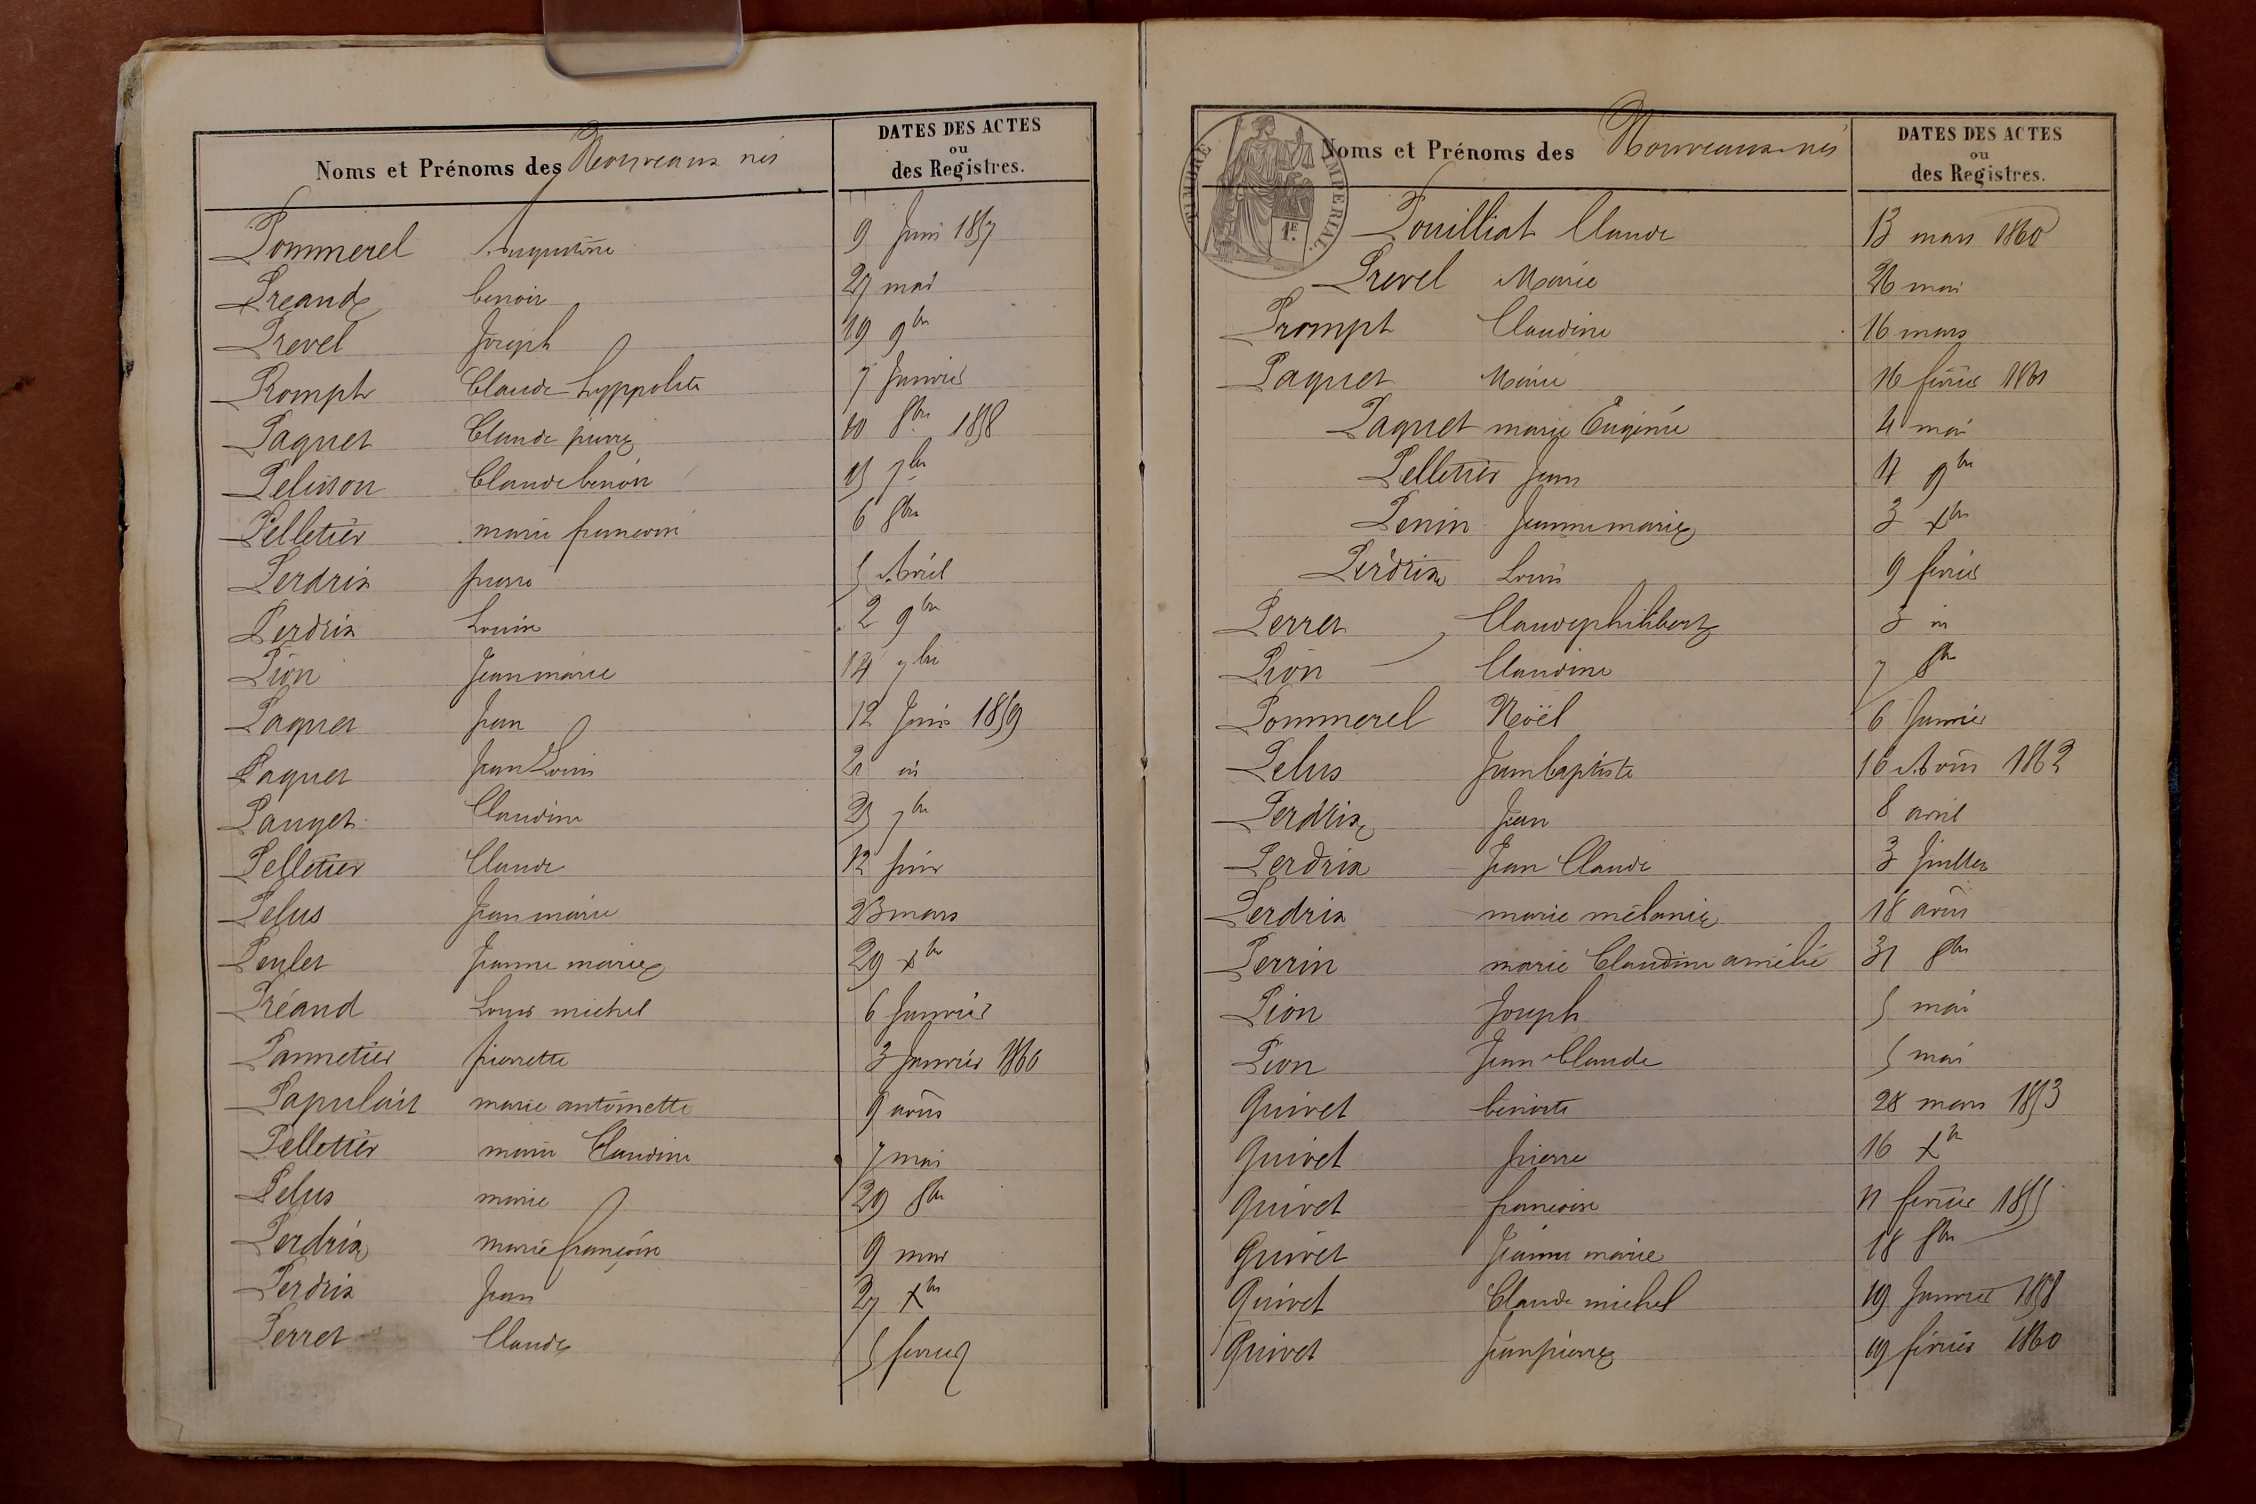 Noms et Prénoms des Nouveaux nés
DATES DES ACTES
ou
des Registres.
Pommerel Augustine 9 Juin 1857
Preaud benoit 27 mai
Prevel Joseph 19 9bre
Prompt Claude hyppolite 7 Janvier
Paquet Claude pierre 10 8bre 1858
Pelisson Claude benoit 15 7bre
Pelletier marie francoise 6 8bre
Perdrix pierre 5 Avril
Perdrix Louise 2 9bre
Pion Jean marie 14 7bre
Paquet Jean 12 Juin 1859
Paquet Jean Louis 21 id
Pauget Claudine 25 7bre
Pelletier Claude 12 Juin
Pelus Jean marie 23 mars
Peulet Jeanne marie 29 xbre
Préaud Louis michel 6 Janvier
Pannetier pierrette 3 Janvier 1860
Papulait marie antoinette 9 août
Pelletier marie Claudine 7 mai
Pelus marie 29 8bre
Perdrix marie françoise 9 mar
Perdrix Jean 27 xbre
Perret Claude 5 fevrier
TIMBRE IMPERIAL
1F.
Noms et Prénoms des Nouveaux nés
DATES DES ACTES
ou
des Registres.
Pouilliat Claude 13 mars 1860
Prevel Marie 26 mai
Prompt Claudine 16 mars
Paquet Marie 16 février 1861
Paquet marie Eugénie 4 mai
Pelletier Jean 9bre
Penin Jeanne marie 3 xbre
Perdrix Louis 9 février
Perret Claude philibert 3 id
Pion Claudine 7 8bre
Pommerel Noël 6 Janvier
Pelus Jean baptiste 16 Août 1862
Perdrix Jean 8 avril
Perdrix Jean Claude 3 Juillet
Perdrix marie mélanie 18 août
Perrin marie Claudine amélie 31 8bre
Pion Joseph 5 mai
Pion Jean Claude 5 mai
Quivet benoite 28 mars 1853
Quivet pierre 16 xbre
Quivet francoise 11 fevrier 1855
Quivet Jeanne marie 18 8bre
Quivet Claude michel 19 Janvier 1858
Quivet Jean pierre 19 février 1860